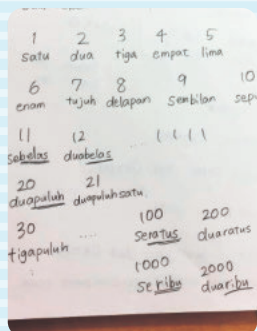 1 2 3 4 5
satu dua tiga empat lima
6 7 8 9 10
enam tujuh delapan sembilan sep
11 12 ....
sebelas duabelas
20 21
duapuluh duapuluhsatu
30 ....
tigapuluh
100 200
seratus duaratus
1000 2000
seribu duaribu